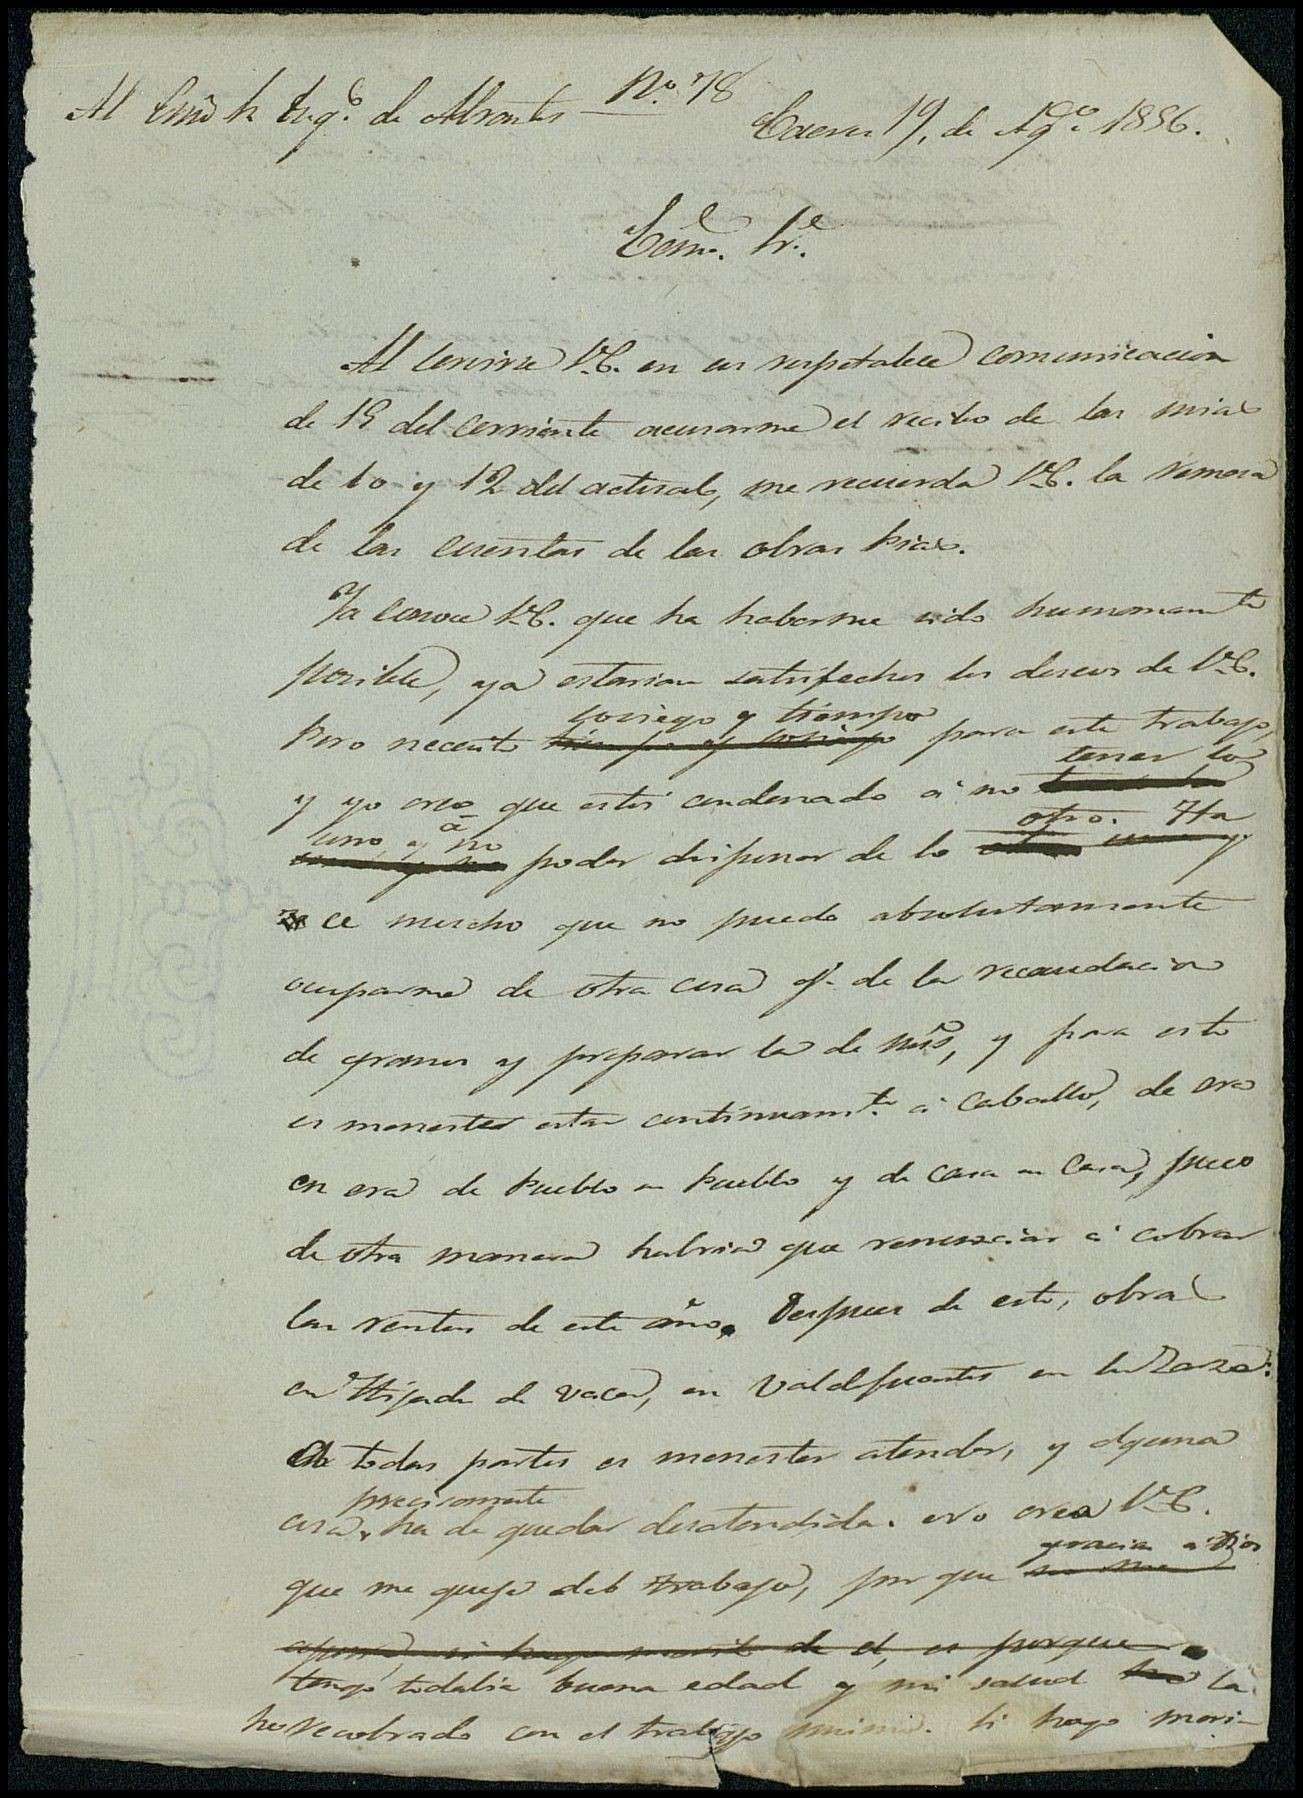 Nº 78
Al Exmõ Sr Duqe. de Abrantes
Caceres 19, de Agto. 1856.
Ecsmo. Sr.
Al servirse V.E. en su respetable comunicacion
de 15 del corriente acusarme el recibo de las mias
de 10 y 12 del actual, me recuerda V.E. la remesa
de las cuentas de las obras pias.
Ya conoce V.E. que ha haberme sido humanamte
posible, ya estarian satisfechos los deseos de V.E.
Pero necesito tiempo y sosiego sosiego y tiempo para este trabajo,
y yo creo que estoi condenado á no tener lo
uno y á no poder disponer de lo otro. Ha
ce mucho que no puedo absolutamente
ocuparme de otra cosa q. de la recaudacion
de granos y preparar la de mrs, y para esto
es menester estar continuamte. á caballo, de era
en era de Pueblo en Pueblo y de casa en casa, pues
de otra manera habria que renunciar á cobrar
las rentas de este año. Despues de esto, obras
en Hijada de vacas, en Valdefuentes en la Zarza:
A todas partes es menester atender, y alguna
cosa precisamente ha de quedar desatendida. No crea V.E.
que me quejo del trabajo, por que gracias a Dios
es porque
tengo todabia buena edad y mi salud la
he recobrado con el trabajo mismo. Si hago meri-